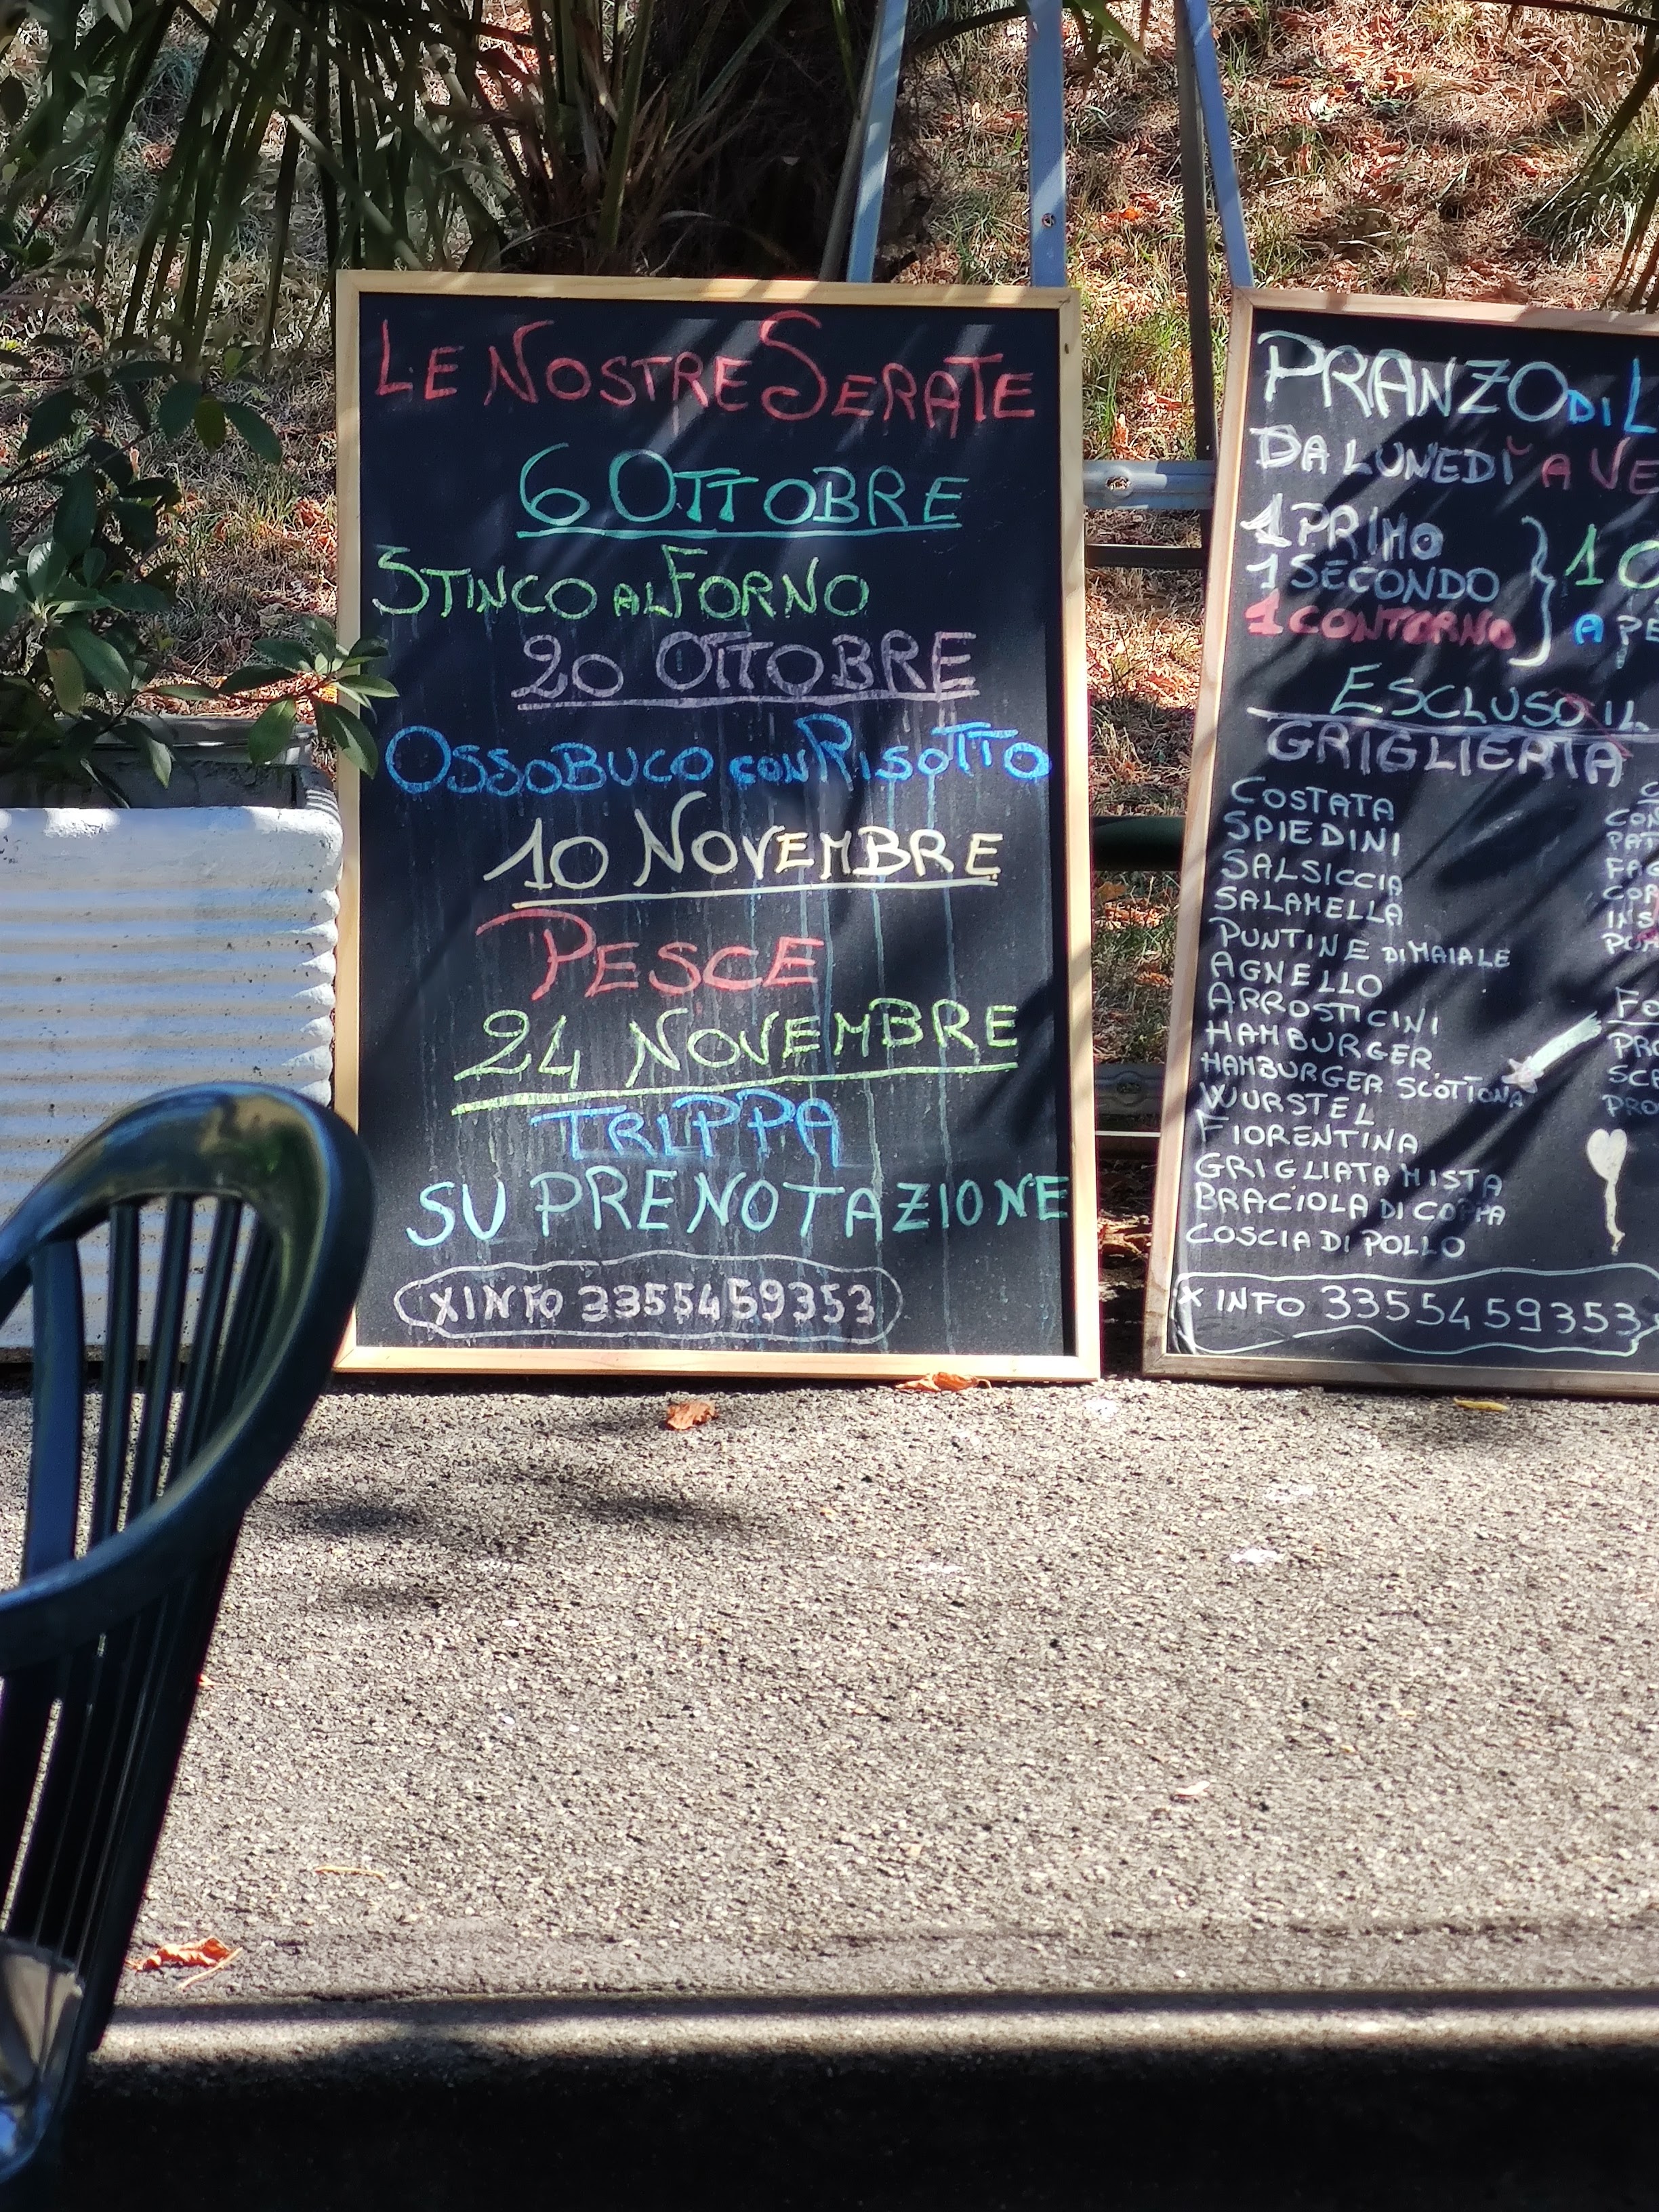 LE NOSTRE SERATE
6 OTTOBRE
STINCO AL FORNO
20 OTTOBRE
OSSOBUCO CON RISOTTO
10 NOVEMBRE
PESCE
24 NOVEMBRE
TRIPPA
SU PRENOTAZIONE
X INFO 3355459353
PRANZO DI L
DA LUNEDÌ A VE
1 PRIMO
1 SECONDO
1 CONTORNO
10
A PE
ESCLUSO IL
GRIGLIERIA
COSTATA
SPIEDINI
SALSICCIA
SALAMELLA
PUNTINE DI MAIALE
AGNELLO
ARROSTICINI
HAMBURGER
HAMBURGER SCOTTONA
WURSTEL
FIORENTINA
GRIGLIATA MISTA
BRACIOLA DI COPPA
COSCIA DI POLLO
CON
PAT
FAG
COR
INS
FO
PRO
SCE
PRO
X INFO 3355459353